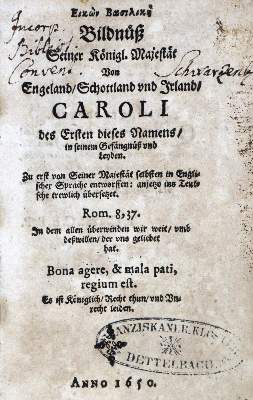 Εικὼν Βασιλικὴ
Bildnüß
Seiner Königl. Majestät
Von
Engeland/ Schottland vnd Irland/
CAROLI
des Ersten dieses Namens/
in seinem Gefängnüß vnd
Leyden.
Zu erst von Seiner Majestät selbsten in Engli-
scher Sprache entworffen: anjetzo ins Teut-
sche trewlich übersetzet.
Rom. 8, 37.
In dem allen überwinden wir weit/ vmb
deßwillen/ der vns geliebet
hat.
Bona agere, & mala pati,
regium est.
Es ist Königlich/ Recht thun/ vnd Vn-
recht leiden.
FRANZISKANER KLOSTER
DETTELBACH
ANNO 1650.